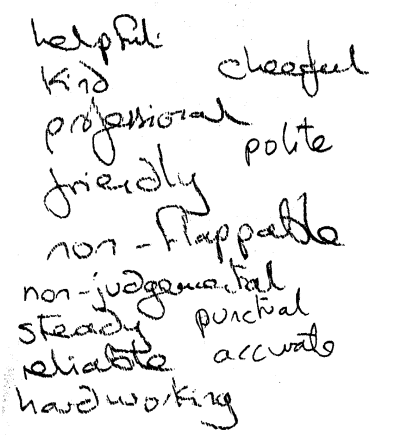 helpful
kind
cheerful
professional
polite
friendly
non-flappable
non-judgemental
steady
punctual
reliable
accurate
hardworking